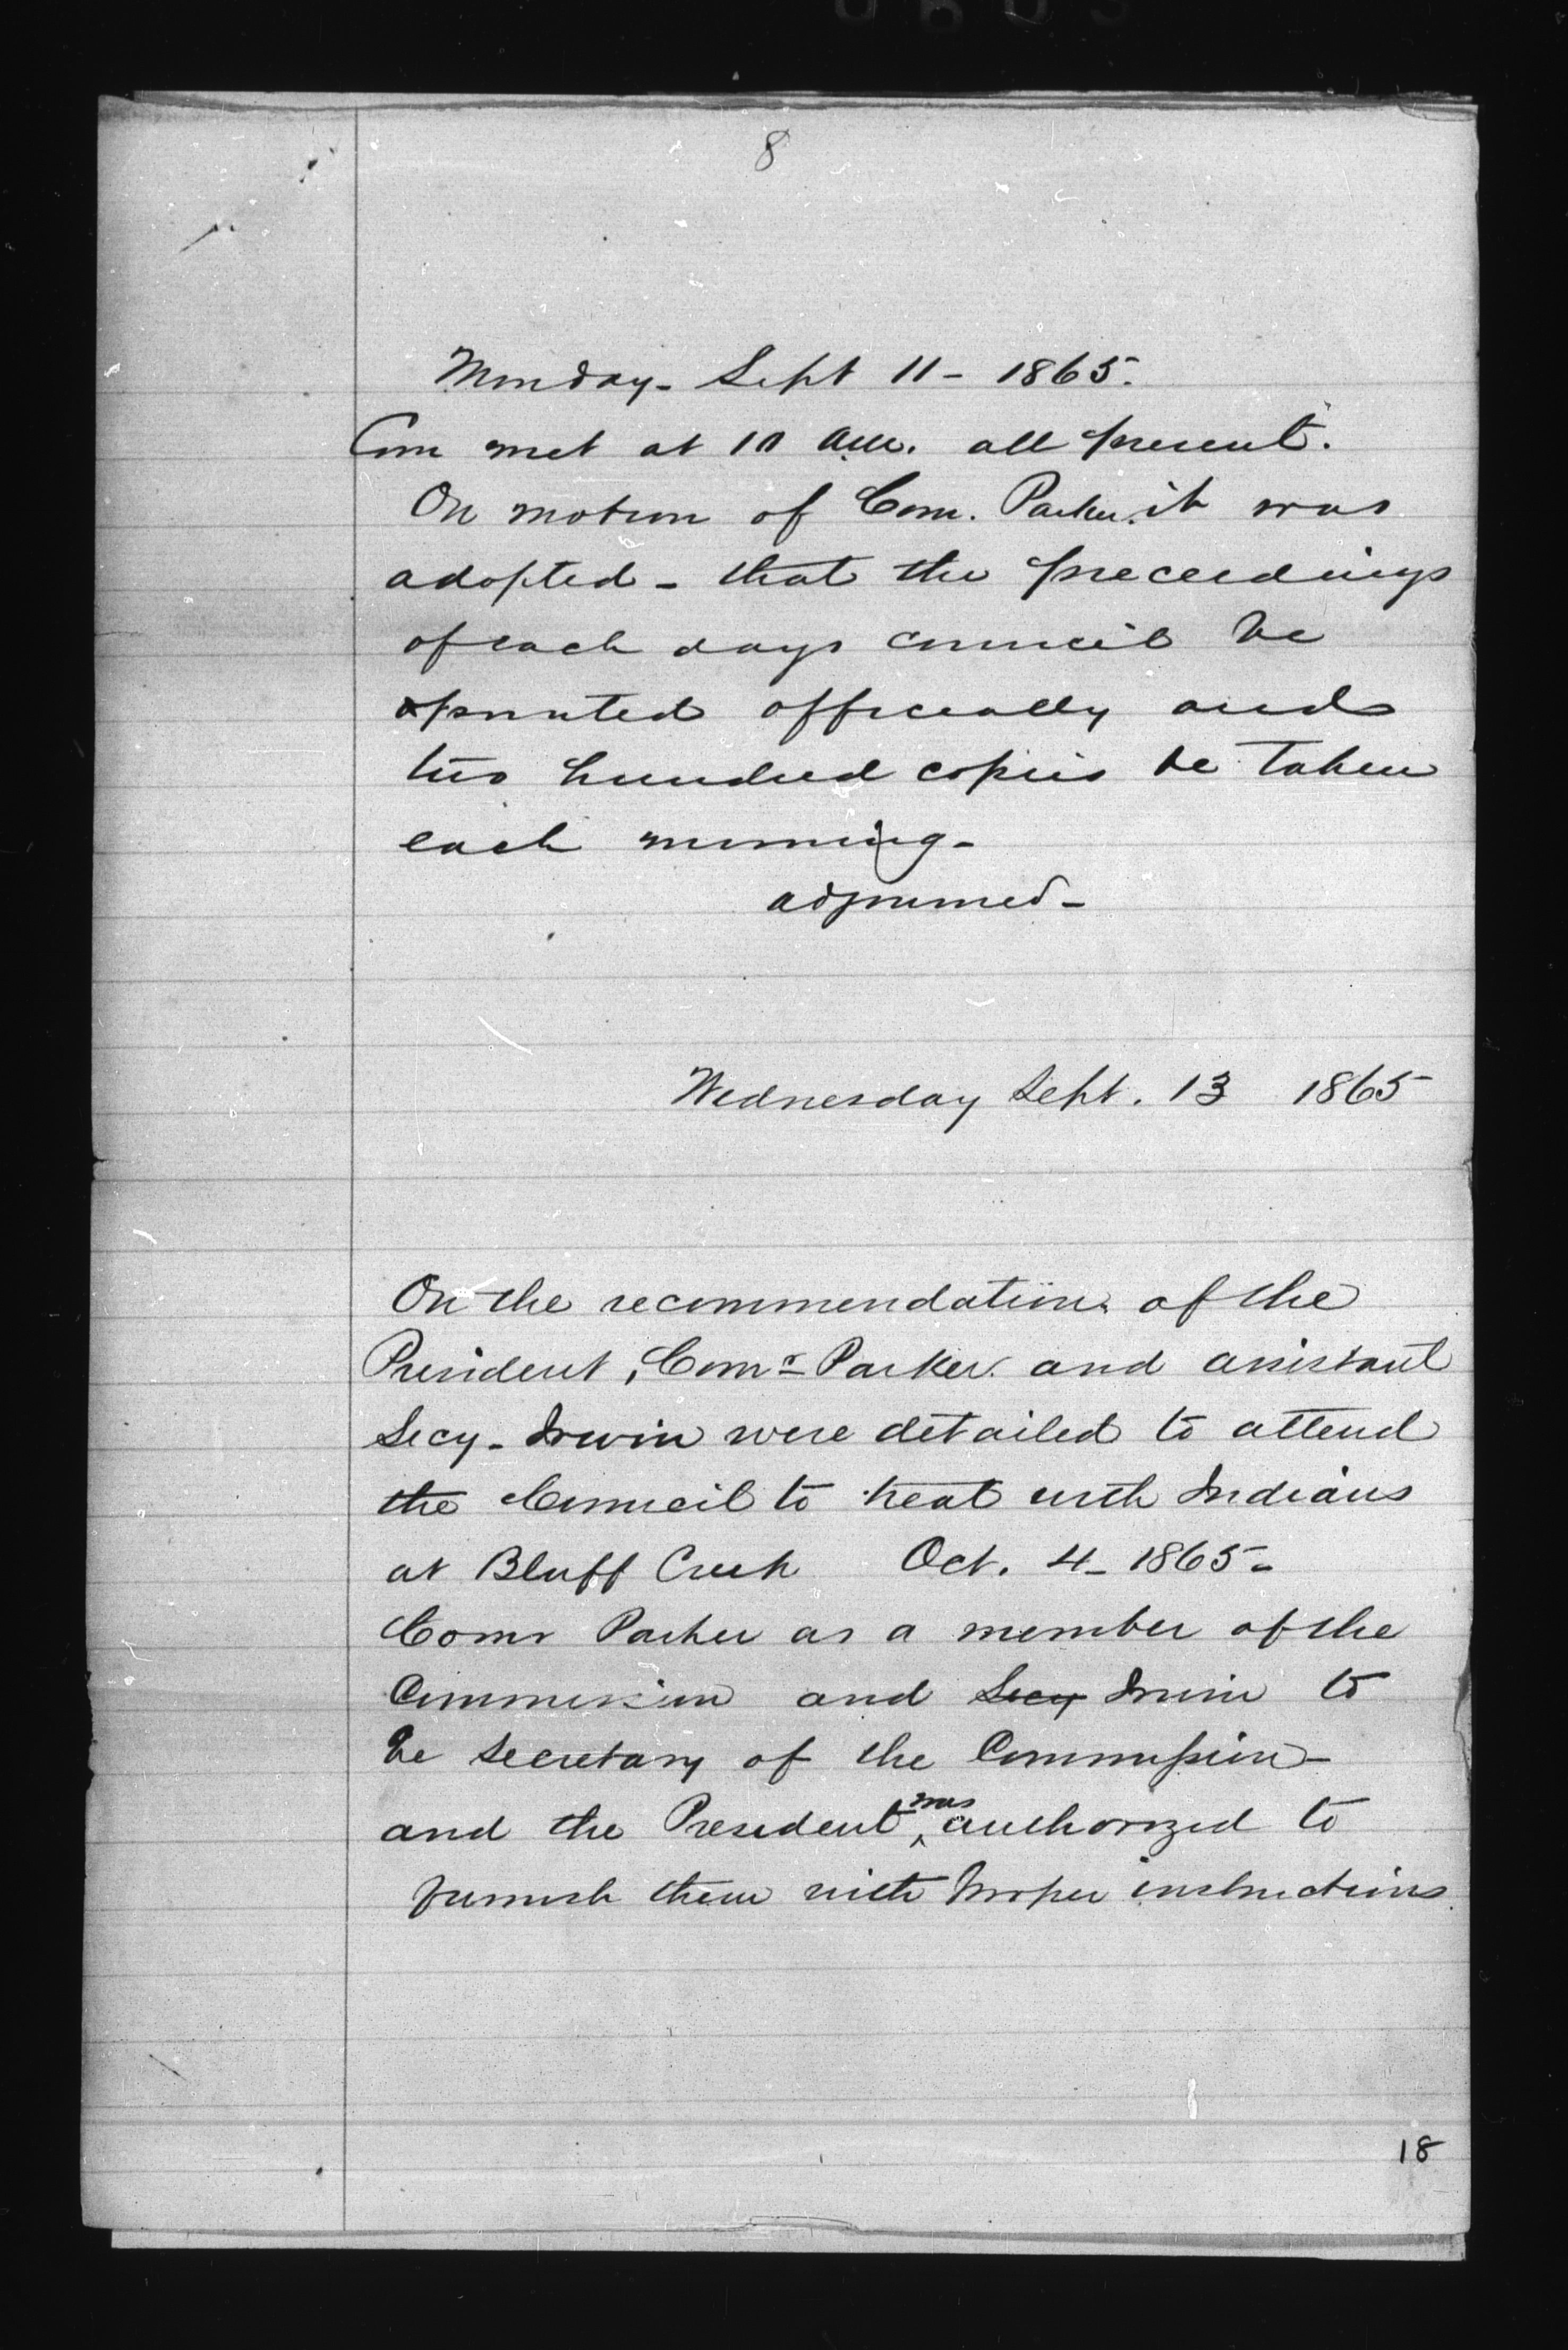 8
Monday - Sept 11 - 1865.
Com met at 10 am. all present.
On motion of Com. Parker it was
adopted - that the preceedings
of each days council be
printed officially and
two hundred copies be taken
each morning -
adjourned -
Wednesday Sept. 13 1865
On the recommendation of the
President, Comr Parker and assistant
Secy - Irwin were detailed to attend
the Council to treat with Indians
at Bluff Creek Oct. 4 - 1865 -
Comr Parker as a member of the
Commission and Secy Irwin to
be secretary of the Commission -
and the President was authorized to
furnish them with proper instructions.
18